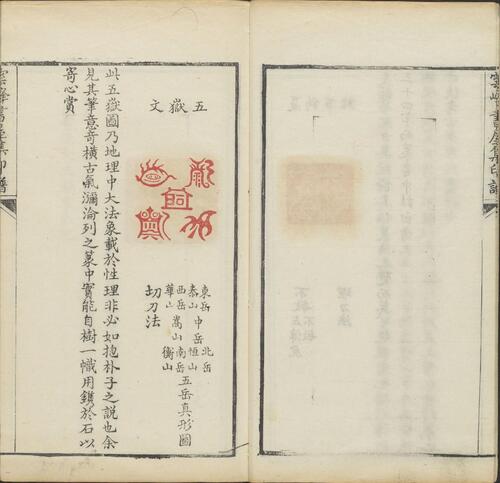 五嶽文
東岳 北岳
泰山 中岳 恒山
西岳 嵩山 南岳 五岳真形圖
華山 衡山
切刀法
此五嶽圖乃地理中大法象載於性理非必如抱朴子之說也余
見其筆意奇橫古氣瀰淪列之篆中實能自樹一幟用鐫於石以
寄心賞
雲峰書屋集印譜